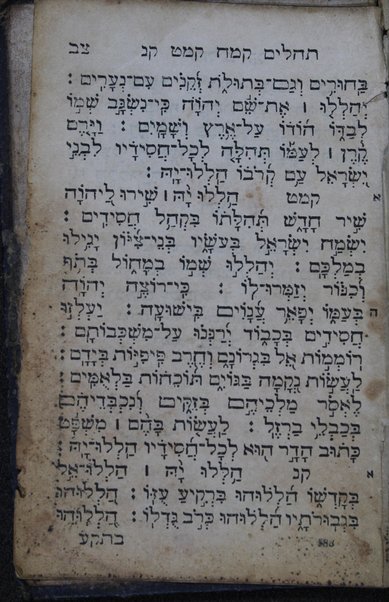 תהלים קמח קמט קנ צב
בַּחוּרִים וְגַם־בְּתוּלוֹת זְקֵנִים עִם־נְעָרִים:
יְהַלְלוּ ׀ אֶת־שֵׁם יְהוָה כִּי־נִשְׂגָּב שְׁמוֹ
לְבַדּוֹ הוֹדוֹ עַל־אֶרֶץ וְשָׁמָיִם: וַיָּרֶם
קֶרֶן ׀ לְעַמּוֹ תְּהִלָּה לְכָל־חֲסִידָיו לִבְנֵי
יִשְׂרָאֵל עַם קְרֹבוֹ הַלְלוּ־יָהּ:
א קמט הַלְלוּ יָהּ ׀ שִׁירוּ לַיהוָה
שִׁיר חָדָשׁ תְּהִלָּתוֹ בִּקְהַל חֲסִידִים:
יִשְׂמַח יִשְׂרָאֵל בְּעֹשָׂיו בְּנֵי־צִיּוֹן יָגִילוּ
בְמַלְכָּם: יְהַלְלוּ שְׁמוֹ בְמָחוֹל בְּתֹף
וְכִנּוֹר יְזַמְּרוּ־לוֹ: כִּי־רוֹצֶה יְהוָה
ה בְּעַמּוֹ יְפָאֵר עֲנָוִים בִּישׁוּעָה: יַעְלְזוּ
חֲסִידִים בְּכָבוֹד יְרַנְּנוּ עַל־מִשְׁכְּבוֹתָם:
רוֹמְמוֹת אֵל בִּגְרוֹנָם וְחֶרֶב פִּיפִיּוֹת בְּיָדָם:
לַעֲשׂוֹת נְקָמָה בַּגּוֹיִם תּוֹכֵחוֹת בַּלְאֻמִּים:
לֶאְסֹר מַלְכֵיהֶם בְּזִקִּים וְנִכְבְּדֵיהֶם
בְּכַבְלֵי בַרְזֶל: לַעֲשׂוֹת בָּהֶם ׀ מִשְׁפָּט
כָּתוּב הָדָר הוּא לְכָל־חֲסִידָיו הַלְלוּ־יָהּ:
א קנ הַלְלוּ יָהּ ׀ הַלְלוּ־אֵל
בְּקָדְשׁוֹ הַלְלוּהוּ בִּרְקִיעַ עֻזּוֹ: הַלְלוּהוּ
בִגְבוּרֹתָיו הַלְלוּהוּ כְּרֹב גֻּדְלוֹ: הַלְלוּהוּ
בתקע